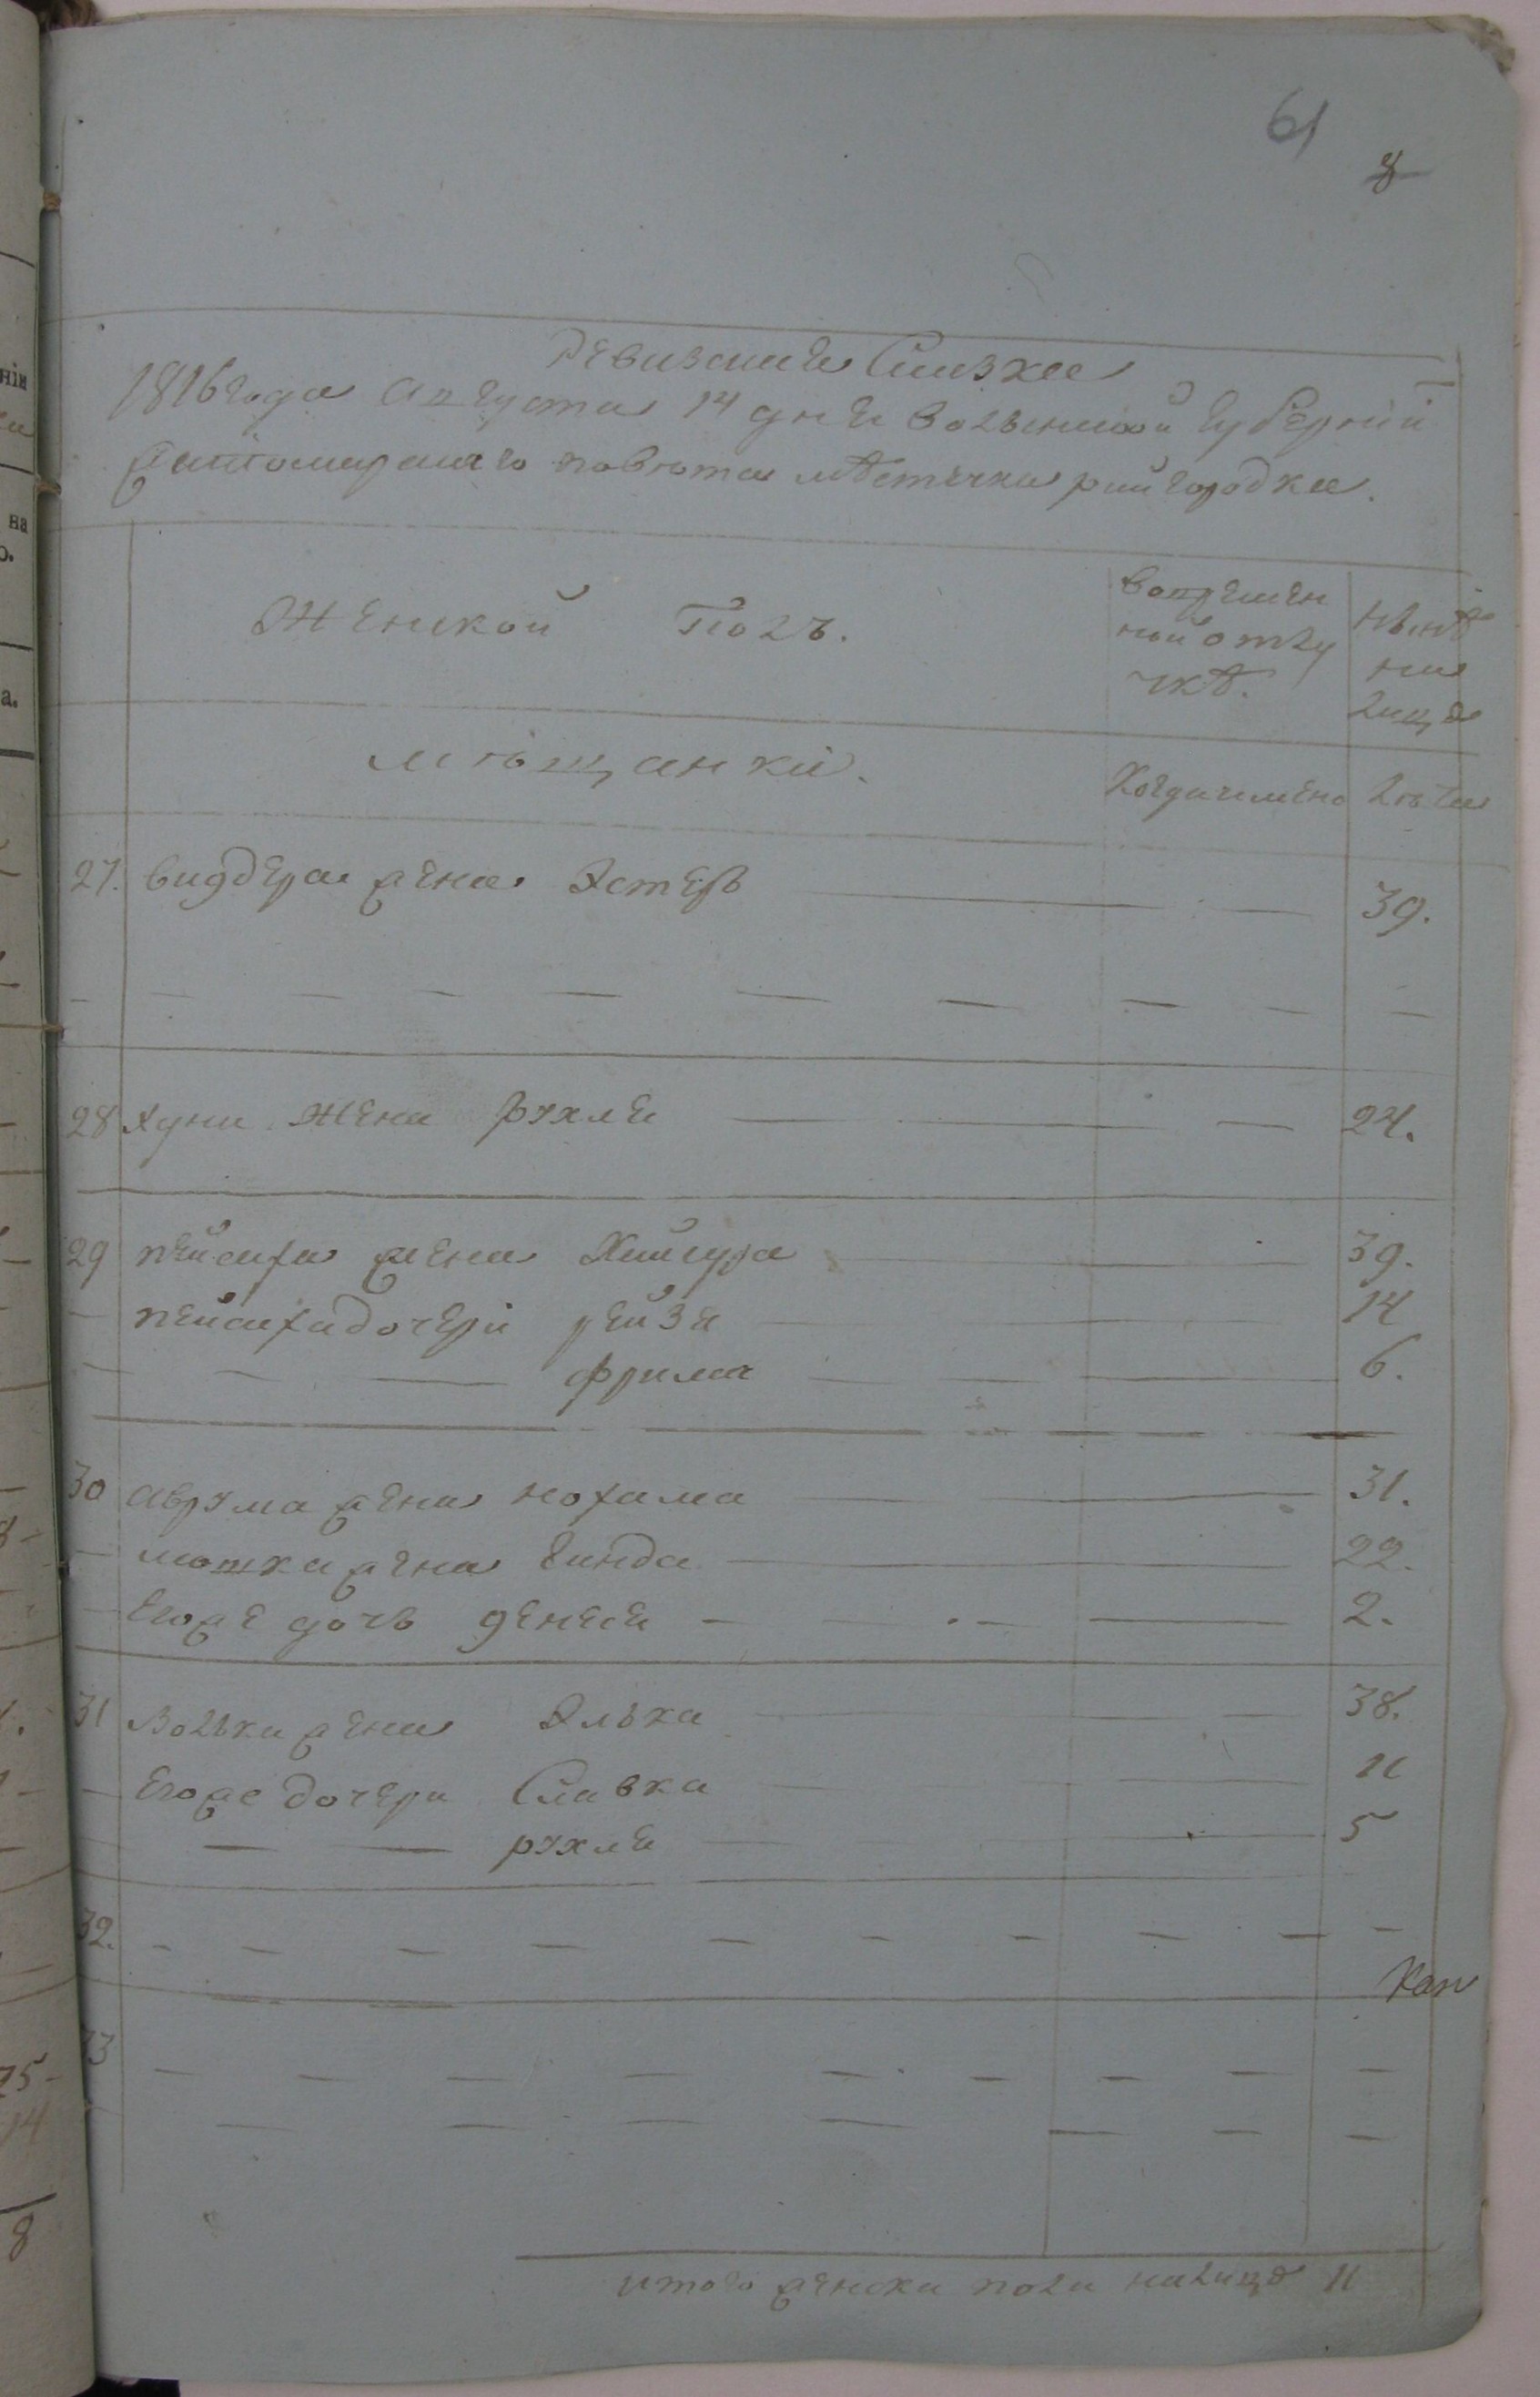 61
8
Ревизская Сказка
1816 года Августа 14 дня Волынской Губерний
Житомирскаго повюта мѣстечка райгородка.
Женской Полъ.
Вовремен
ной отлу
чкѣ.
Нынѣ
на
лицѣ
мѣщанки.
Когдачимено
лѣта
27. видбера жена Эстеръ 39.
28 Хуни жена рухля 24.
29 пейсаха жена Хайсура 39.
пейсаха дочери рейзя 14
фрима 6.
30 Аврума жена нохама 31.
мошка жена Гинда 22.
Егоже дочь 2.
31 Волька жена Элька 38.
Егоже дочери Славка 11
рухля 5
32.
Кап
33
итого женска пола налицѣ 11